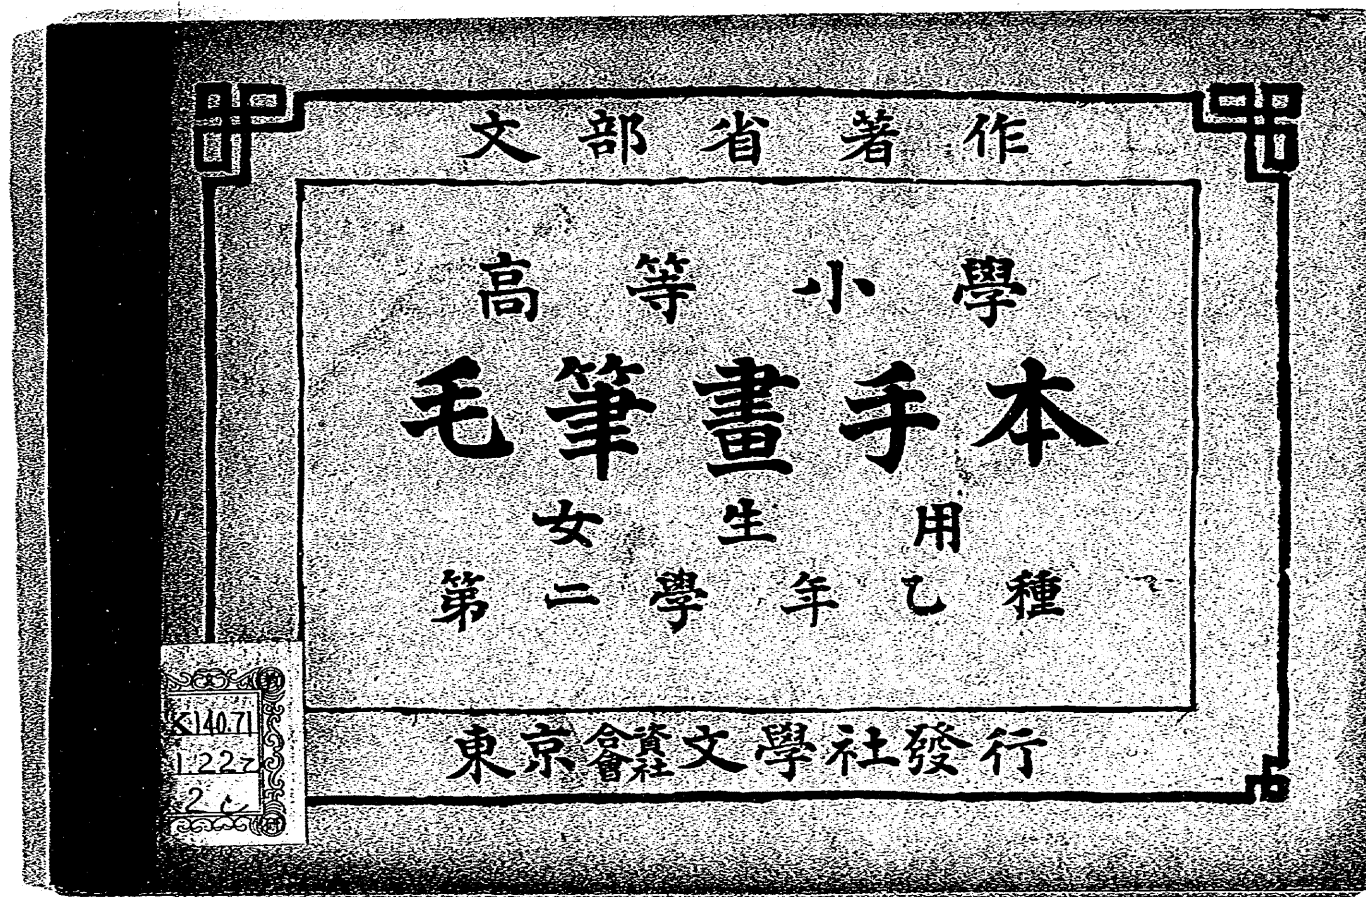 文部省著作
高等小學
毛筆畫手本
女生用
第二學年乙種
東京合資會社文學社發行
K140.71
1.22
2